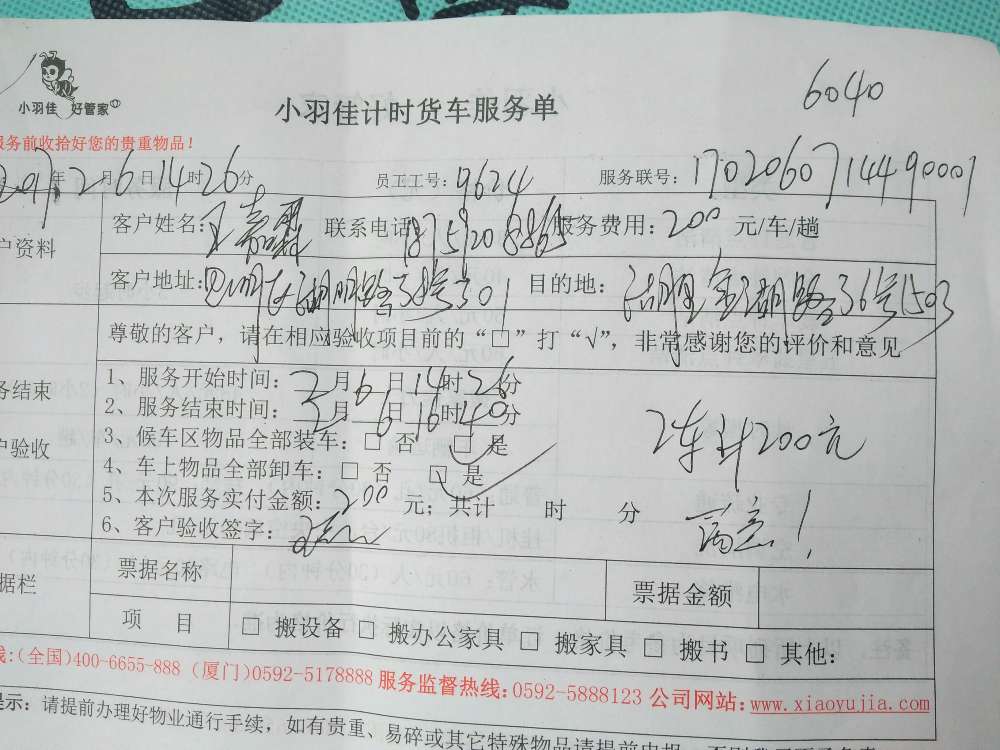 6040
小羽佳 好管家
小羽佳计时货车服务单
服务前收拾好您的贵重物品！
2017年2月6日14时26分 员工工号：9624 服务联号：170206071449 0001
户资料
客户姓名： 联系电话： 服务费用：200 元/车/趟
客户地址： 目的地：湖里 金湖路36号1503
尊敬的客户，请在相应验收项目前的“□”打“√”，非常感谢您的评价和意见
务结束
户验收
1、服务开始时间：2月6日14时26分
2、服务结束时间：2月6日16时40分
3、候车区物品全部装车：□ 否 □ 是
4、车上物品全部卸车：□ 否 □ 是
5、本次服务实付金额：200 元；共计 时 分
6、客户验收签字：
2车计200元
满意！
据栏
票据名称 票据金额
项 目 □ 搬设备 □ 搬办公家具 □ 搬家具 □ 搬书 □ 其他：
线:(全国)400-6655-888 (厦门)0592-5178888 服务监督热线：0592-5888123 公司网站：www.xiaoyujia.com
提示：请提前办理好物业通行手续，如有贵重、易碎或其它特殊物品请提前申报，